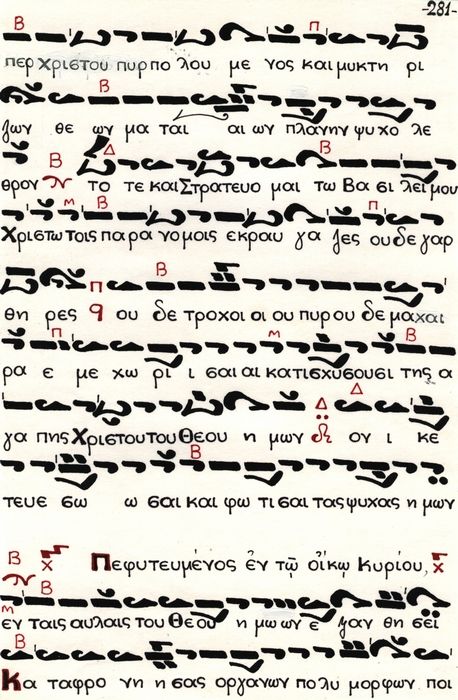 -281-
περ Χριστου πυρ πο λου με νος και μυκτη ρι
ζων θε ων μα ται αι ων πλανην ψυ χο λε
θρον το τε και Στρατευο μαι τω Βα σι λει μου
Χριστω τοις πα ρα νο μοις εκραυ γα ζες ου δε γαρ
θη ρες ου δε τροχοι οι ου πυρ ου δε μαχαι
ρα ε με χω ρι ι σαι αι κατισχυσουσι της α
γα πης Χριστου του Θεου η μων ον ι κε
τευε σω ω σαι και φω τι σαι τας ψυχας η μων
Πεφυτευμένος ἐν τῷ οἴκῳ Κυρίου,
εν ταις αυλαις του Θεου η μω ων ε ξαν θη σει
Κα ταφρο νη η σας οργανων πο λυ μορφων ποι